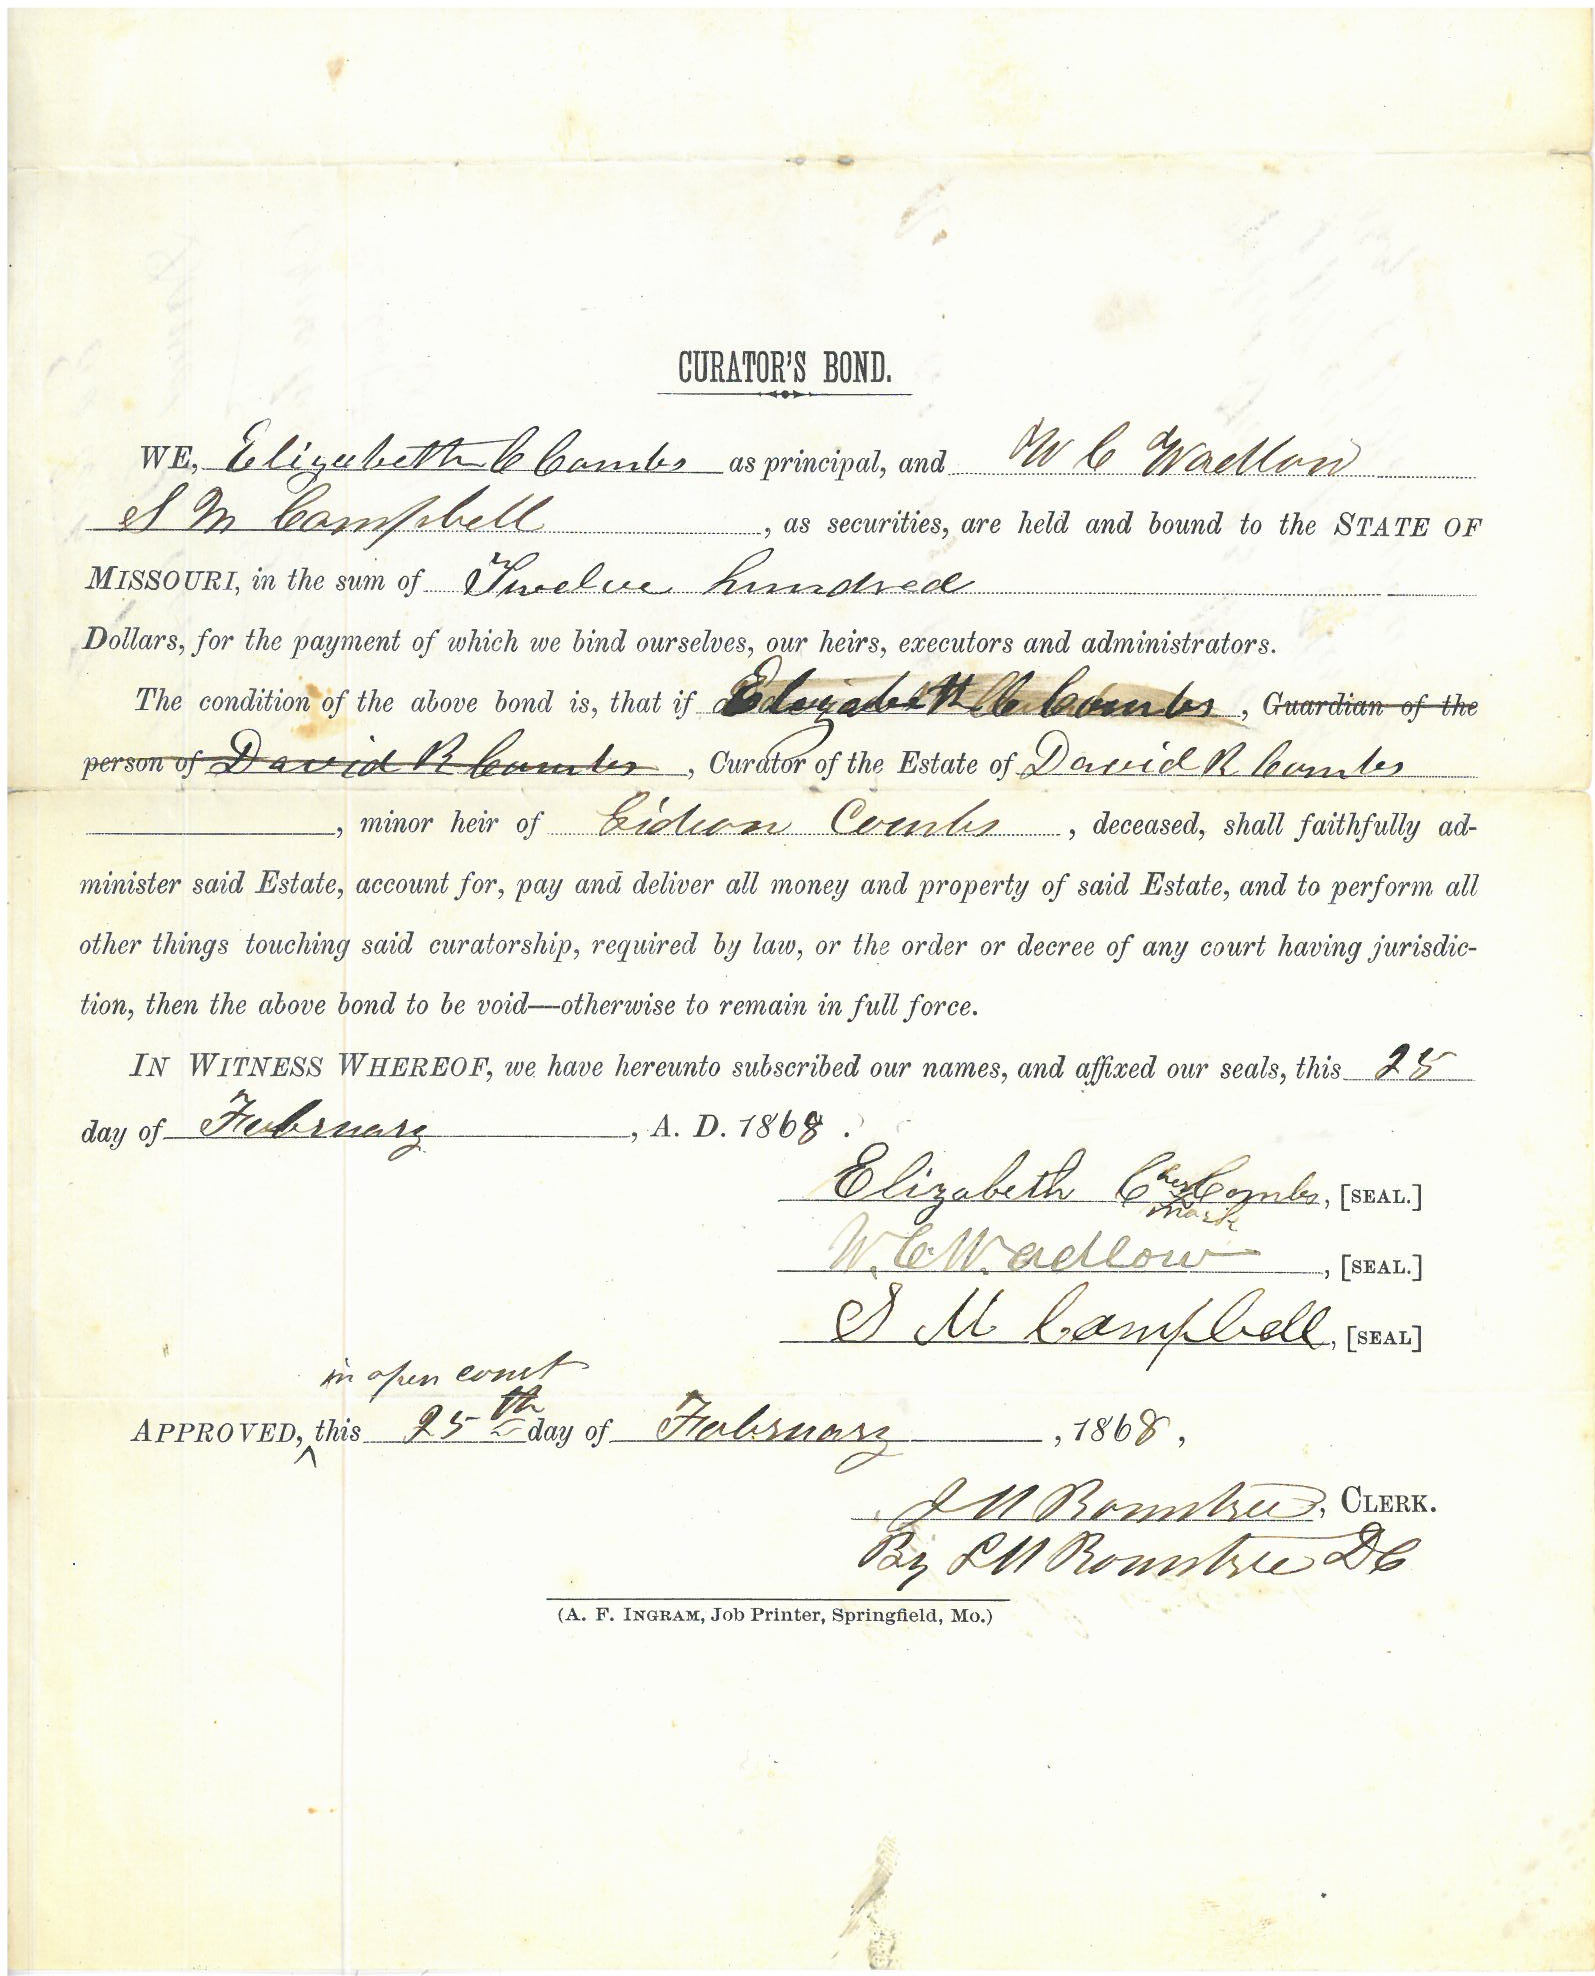 CURATOR'S BOND.
WE, Elizabeth C Combs as principal, and W C Wadlow
S M Campbell, as securities, are held and bound to the STATE OF
MISSOURI, in the sum of Twelve hundred
Dollars, for the payment of which we bind ourselves, our heirs, executors and administrators.
The condition of the above bond is, that if Elizabeth C Combs, Guardian of the
person of David R Combs, Curator of the Estate of David R Combs
, minor heir of Gideon Combs, deceased, shall faithfully ad-
minister said Estate, account for, pay and deliver all money and property of said Estate, and to perform all
other things touching said curatorship, required by law, or the order or decree of any court having jurisdic-
tion, then the above bond to be void—otherwise to remain in full force.
IN WITNESS WHEREOF, we have hereunto subscribed our names, and affixed our seals, this 25
day of February, A. D. 1868.
Elizabeth C her Combs, [SEAL.]
mark
W. C. Wadlow, [SEAL.]
S M Campbell, [SEAL]
in open court
APPROVED, ^ this 25th day of February, 1868,
J N Rountree, CLERK.
By L N Rountree DC
(A. F. INGRAM, Job Printer, Springfield, Mo.)